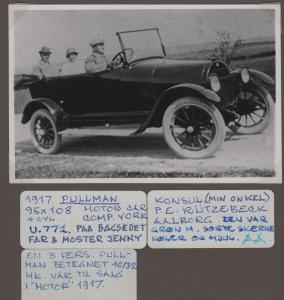 1917 PULLMAN
95x108 MOTOR CAR
4 CYL. COMP. YORK
U.771. PAA BAGSÆDET
FAR & MOSTER JENNY
EN 5 PERS. PULL-
MAN BETEGNET 10/32
HK. VAR TIL SALG
I "MOTOR" 1917.
KONSUL (MIN ONKEL)
P.E. RÜTZEBECK
AALBORG. DEN VAR
GRØN M. SORTE SKÆRME
KØLER OG HJUL.